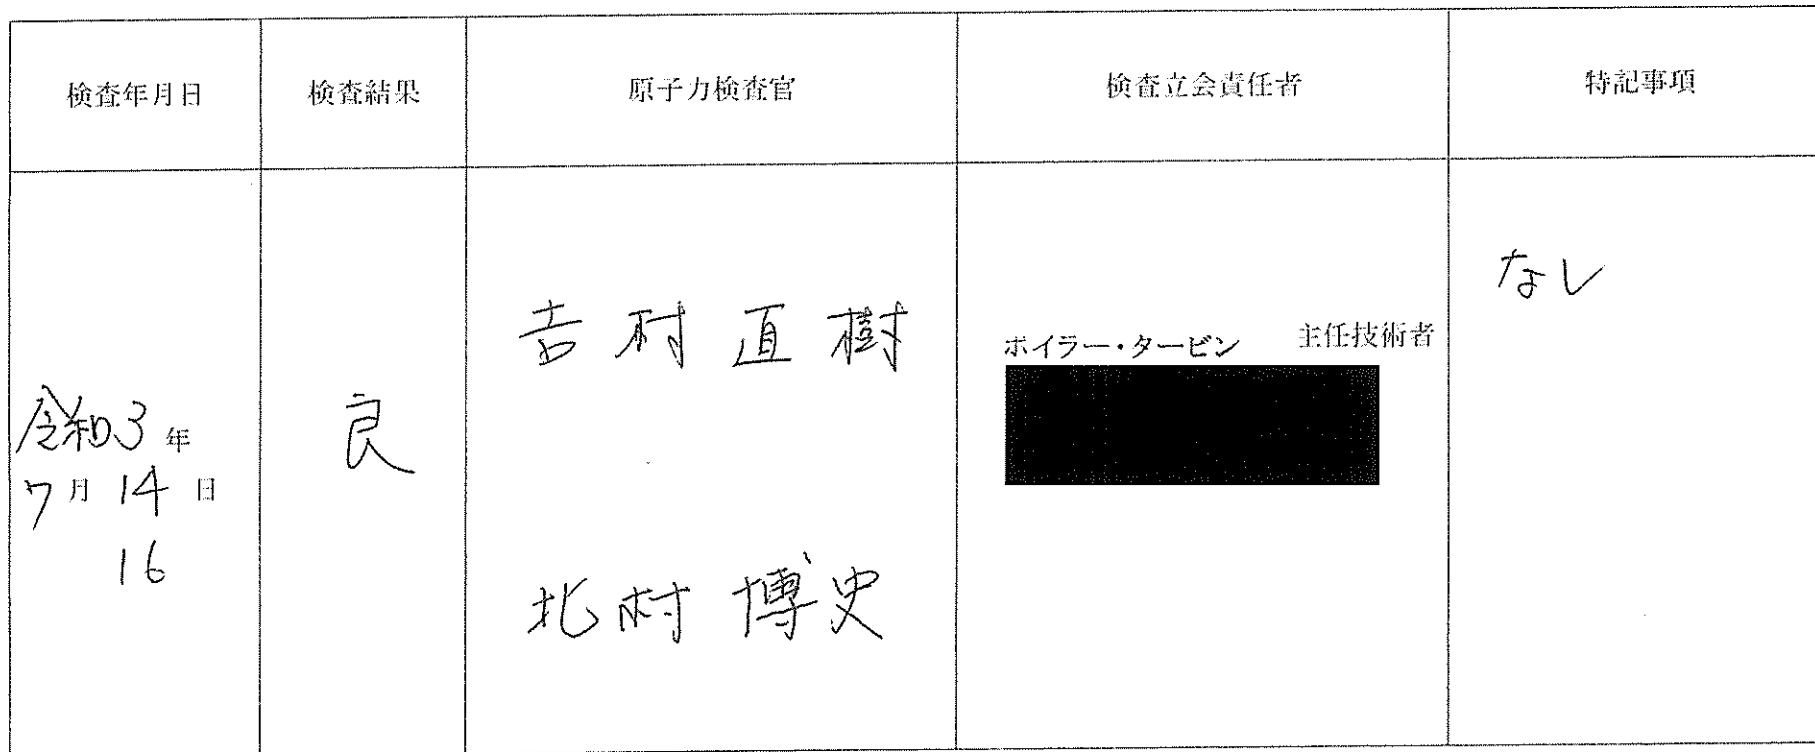 検査年月日
検査結果
原子力検査官
検査立会責任者
特記事項
令和3年
7月14日
16
良
吉村直樹
北村博史
ボイラー・タービン 主任技術者
なし